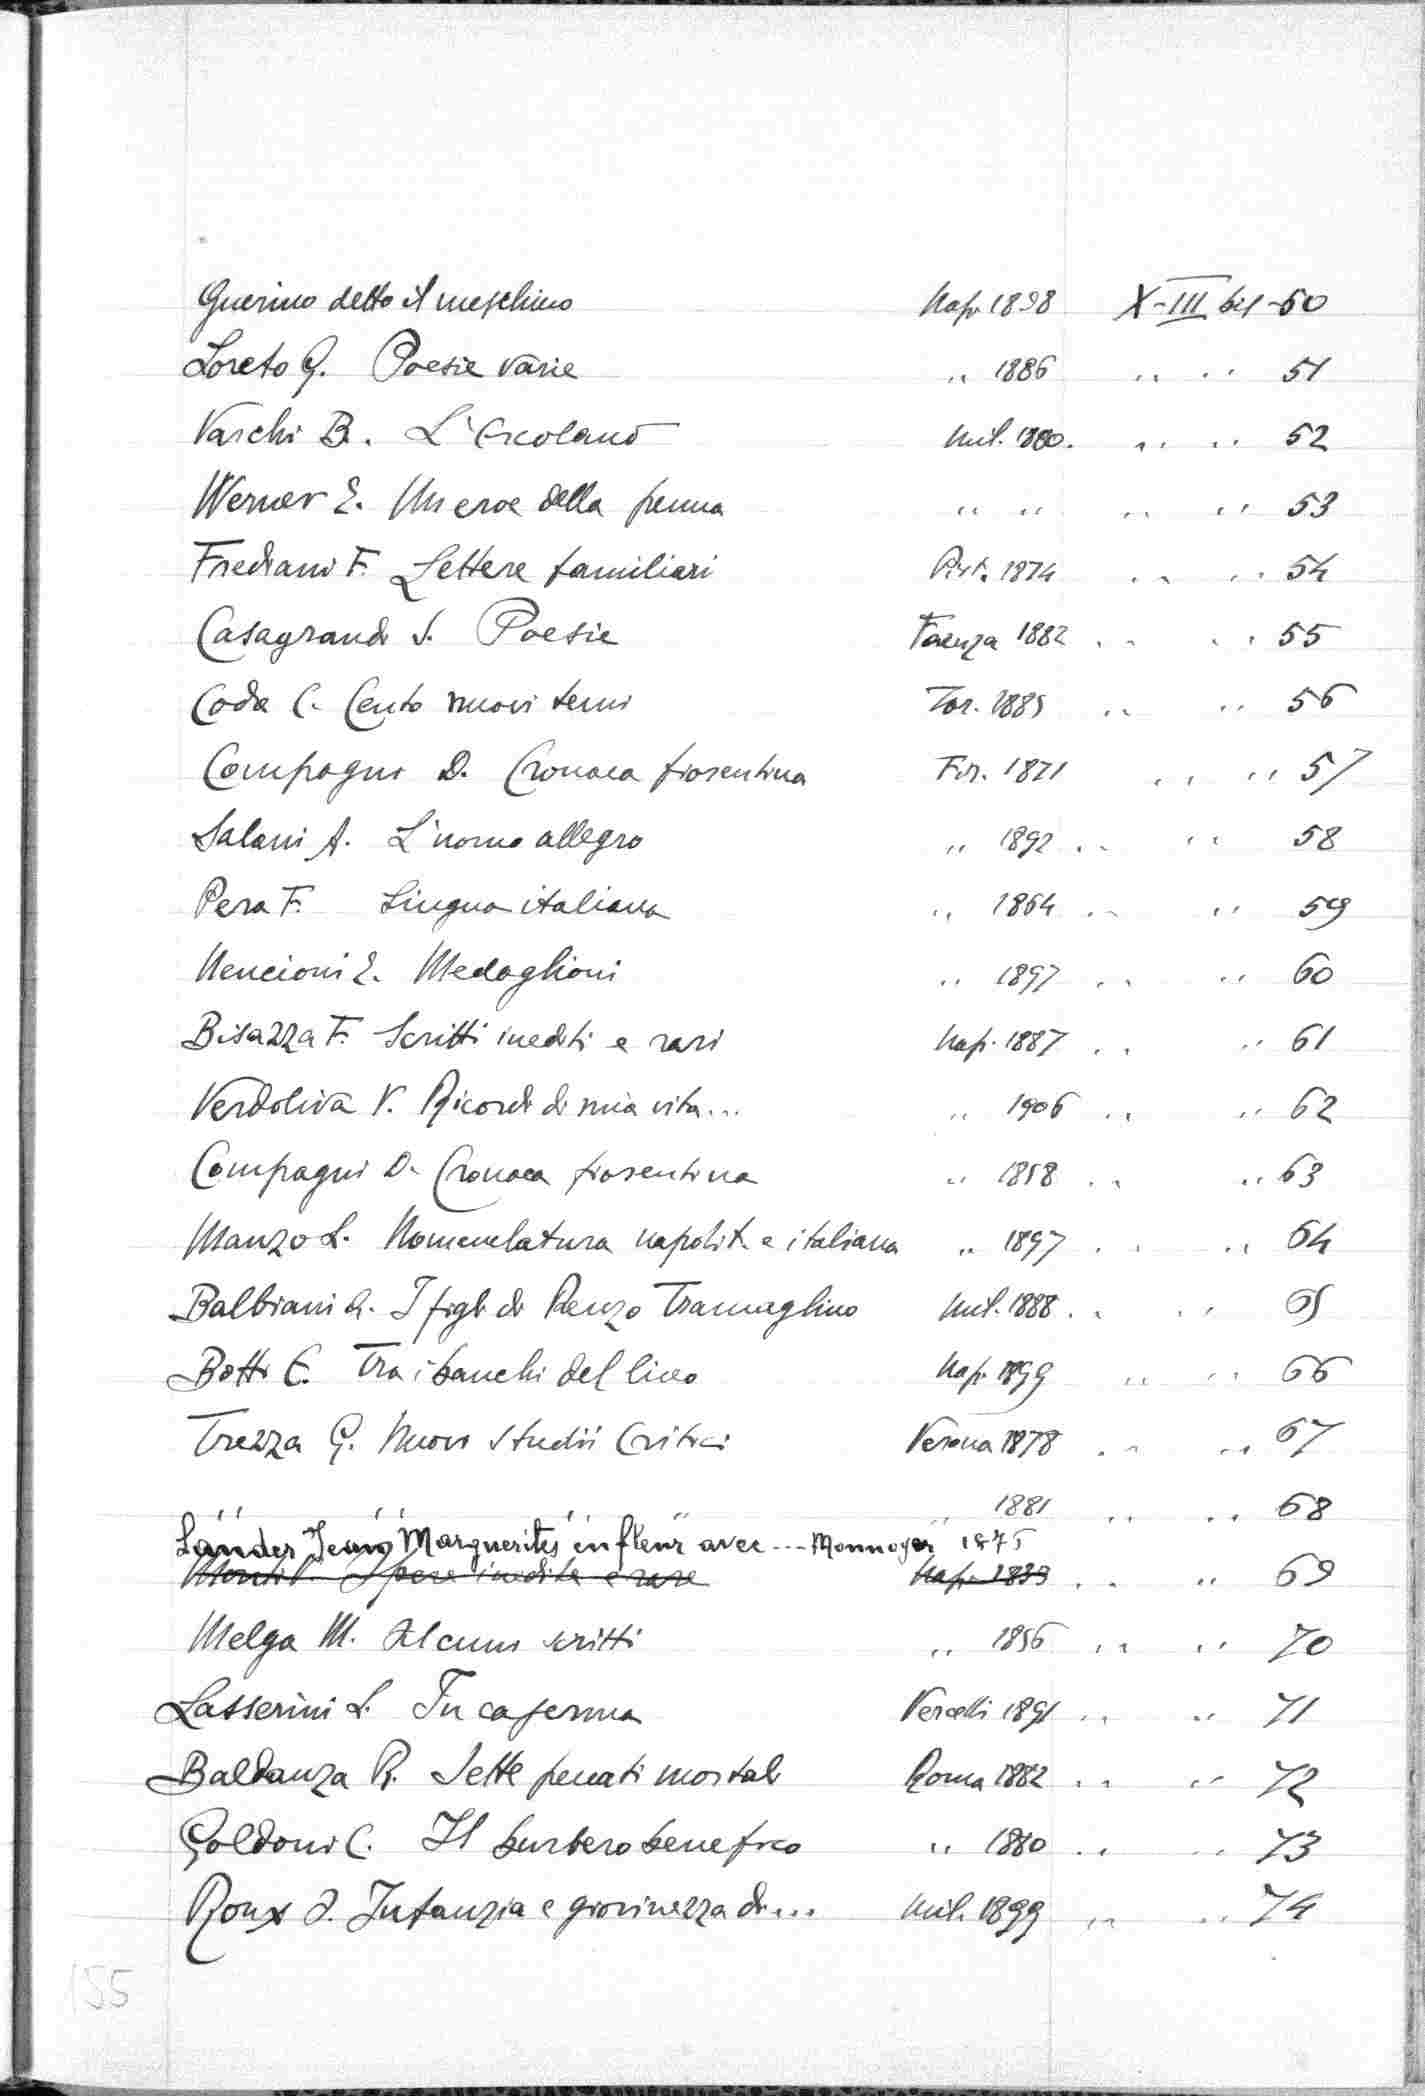 Guerino detto il meschino Nap. 1898 X-III bis-50
Loreto G. Poesie varie " 1886 " " 51
Varchi B. L'Ercolano Mil. 1880. " " 52
Werner E. Un eroe della penna " " " " 53
Frediani F. Lettere familiari Pist. 1874 " " 54
Casagrandi S. Poesie Faenza 1882 " " 55
Coda C. Cento nuovi temi Tor. 1885 " " 56
Compagni D. Cronaca fiorentina Fir. 1871 " " 57
Salani A. L'uomo allegro " 1892 " " 58
Pera F. Lingua italiana " 1864 " " 59
Nencioni E. Medaglioni " 1897 " " 60
Bisazza F. Scritti inediti e rari Nap. 1887 " " 61
Verdoliva V. Ricordi di mia vita... " 1906 " " 62
Compagni D. Cronaca fiorentina " 1858 " " 63
Manzo L. Nomenclatura napolit. e italiana " 1897 " " 64
Balbiani A. I figli di Renzo Tramaglino Mil. 1888 " " 65
Botti C. Tra i banchi del liceo Nap. 1899 " " 66
Trezza G. Nuovi studii critici Verona 1878 " " 67
" " " " 1881 " " 68
Lander Jenny Marguerites en fleur avec --- Monnoyer 1875
Monti V. Opere inedite e rare Nap. 1833 " " 69
Melga M. Alcuni scritti " 1856 " " 70
Lasserini L. In caserma Vercelli 1891 " " 71
Baldanza R. Sette peccati mortali Roma 1882 " " 72
Goldoni C. Il burbero benefico " 1880 " " 73
Roux O. Infanzia e giovinezza di... Mil. 1899 " " 74
155